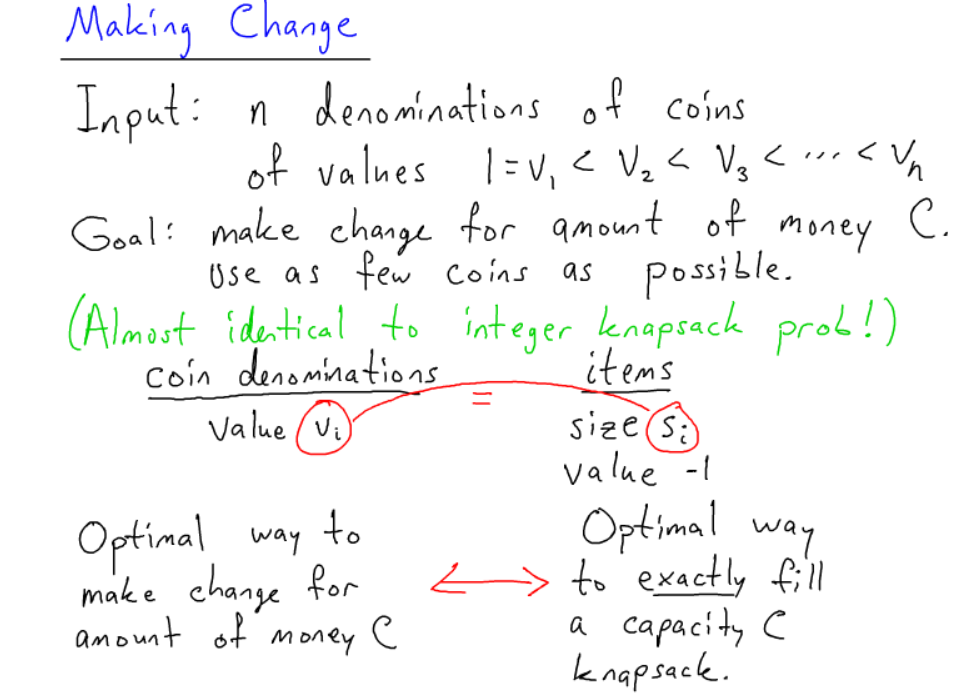 Making Change
Input: n denominations of coins
of values 1 = v₁ < v₂ < v₃ < ... < vₙ
Goal: make change for amount of money C.
Use as few coins as possible.
(Almost identical to integer knapsack prob!)
coin denominations = items
value vᵢ size sᵢ
value -1
Optimal way to
make change for
amount of money C
Optimal way
to exactly fill
a capacity C
knapsack.